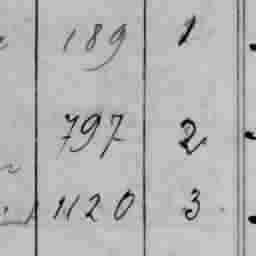 189 1
797 2
1120 3